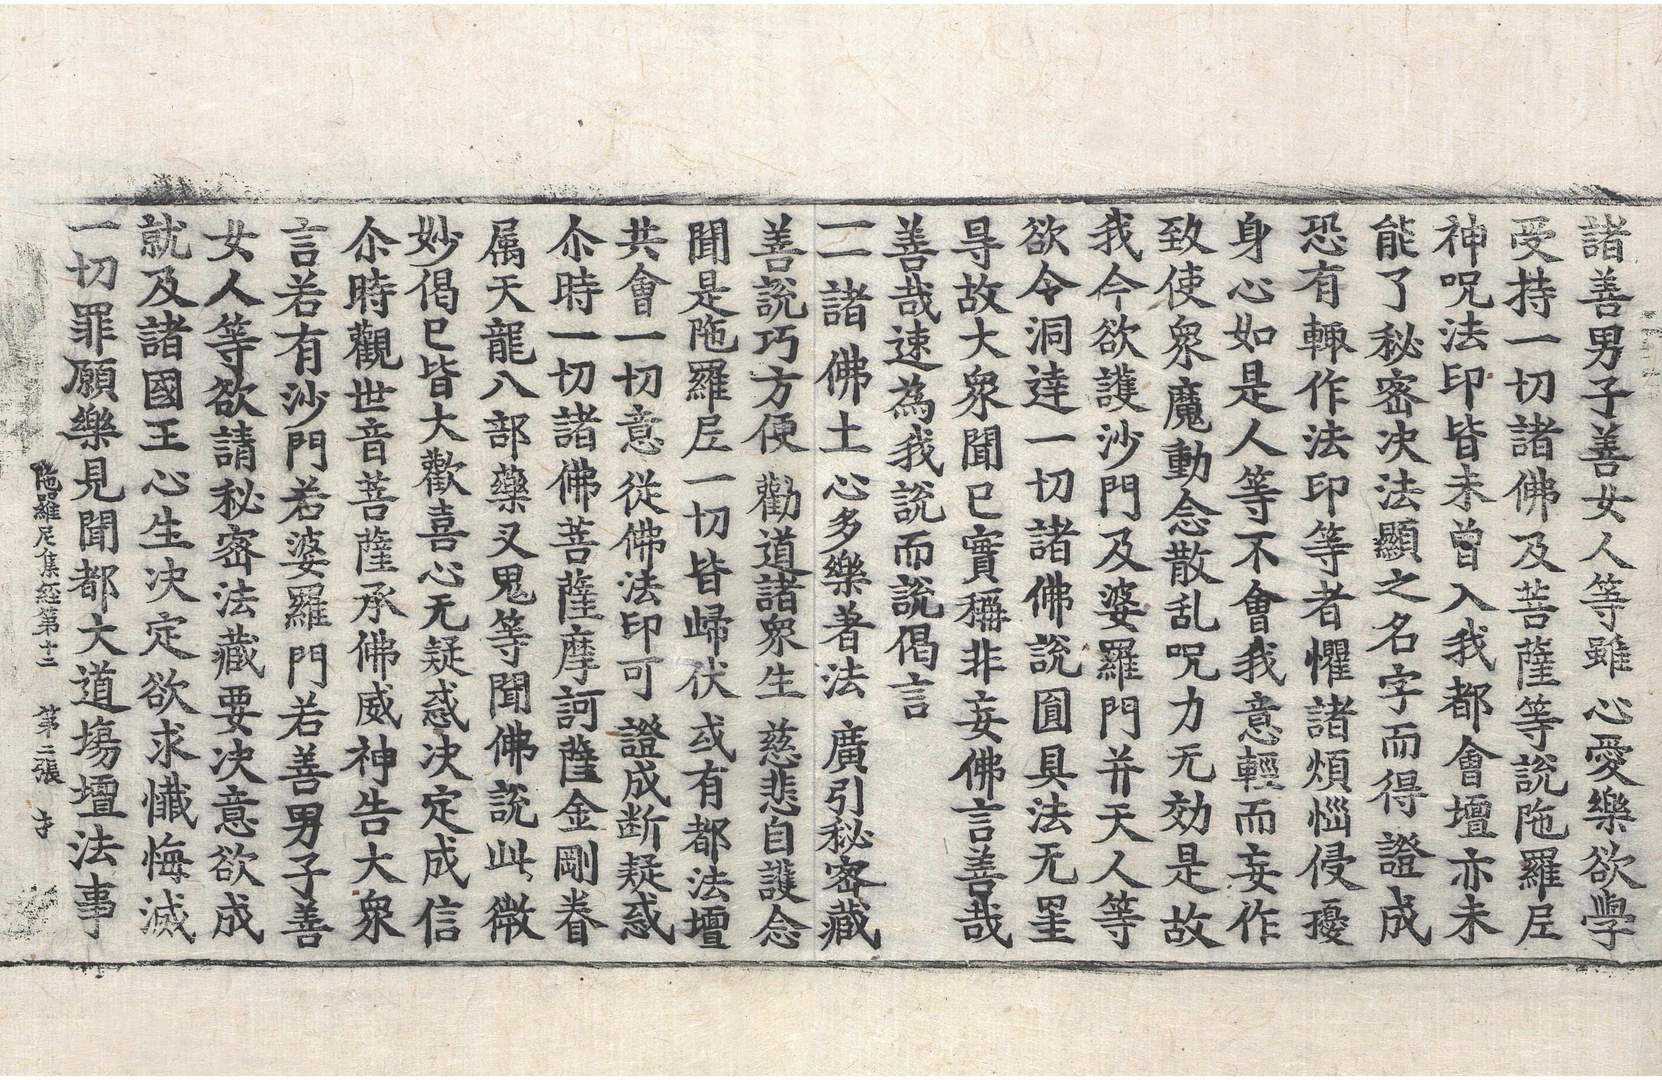 諸善男子善女人等雖心愛樂欲學
受持一切諸佛及菩薩等說陁羅𡰱
神呪法印皆未曾入我都會壇亦未
能了秘密决法顯之名字而得證成
恐有輙作法印等者懼諸煩惱侵擾
身心如是人等不會我意輕而妄作
致使衆魔動念散乱呪力无効是故
我今欲護沙門及婆羅門并天人等
欲令洞達一切諸佛說圎具法无罣
㝵故大衆聞已實稱非妄佛言善哉
善哉速為我說而說偈言
一一諸佛土 心多樂著法 廣引秘密藏
善說巧方便 勸道諸衆生 慈悲自護念
聞是陁羅𡰱 一切皆歸伏 或有都法壇
共會一切意 從佛法印可 證成断疑惑
尒時一切諸佛菩薩摩訶薩金剛眷
属天龍八部藥叉鬼等聞佛說此微
妙偈已皆大歡喜心无疑惑决定成信
尒時觀世音菩薩承佛威神告大衆
言若有沙門若婆羅門若善男子善
女人等欲請秘密法藏要决意欲成
就及諸國王心生决定欲求懺悔滅
一切罪願樂見聞都大道場壇法事
陁羅尼集經第十二 第二張 才